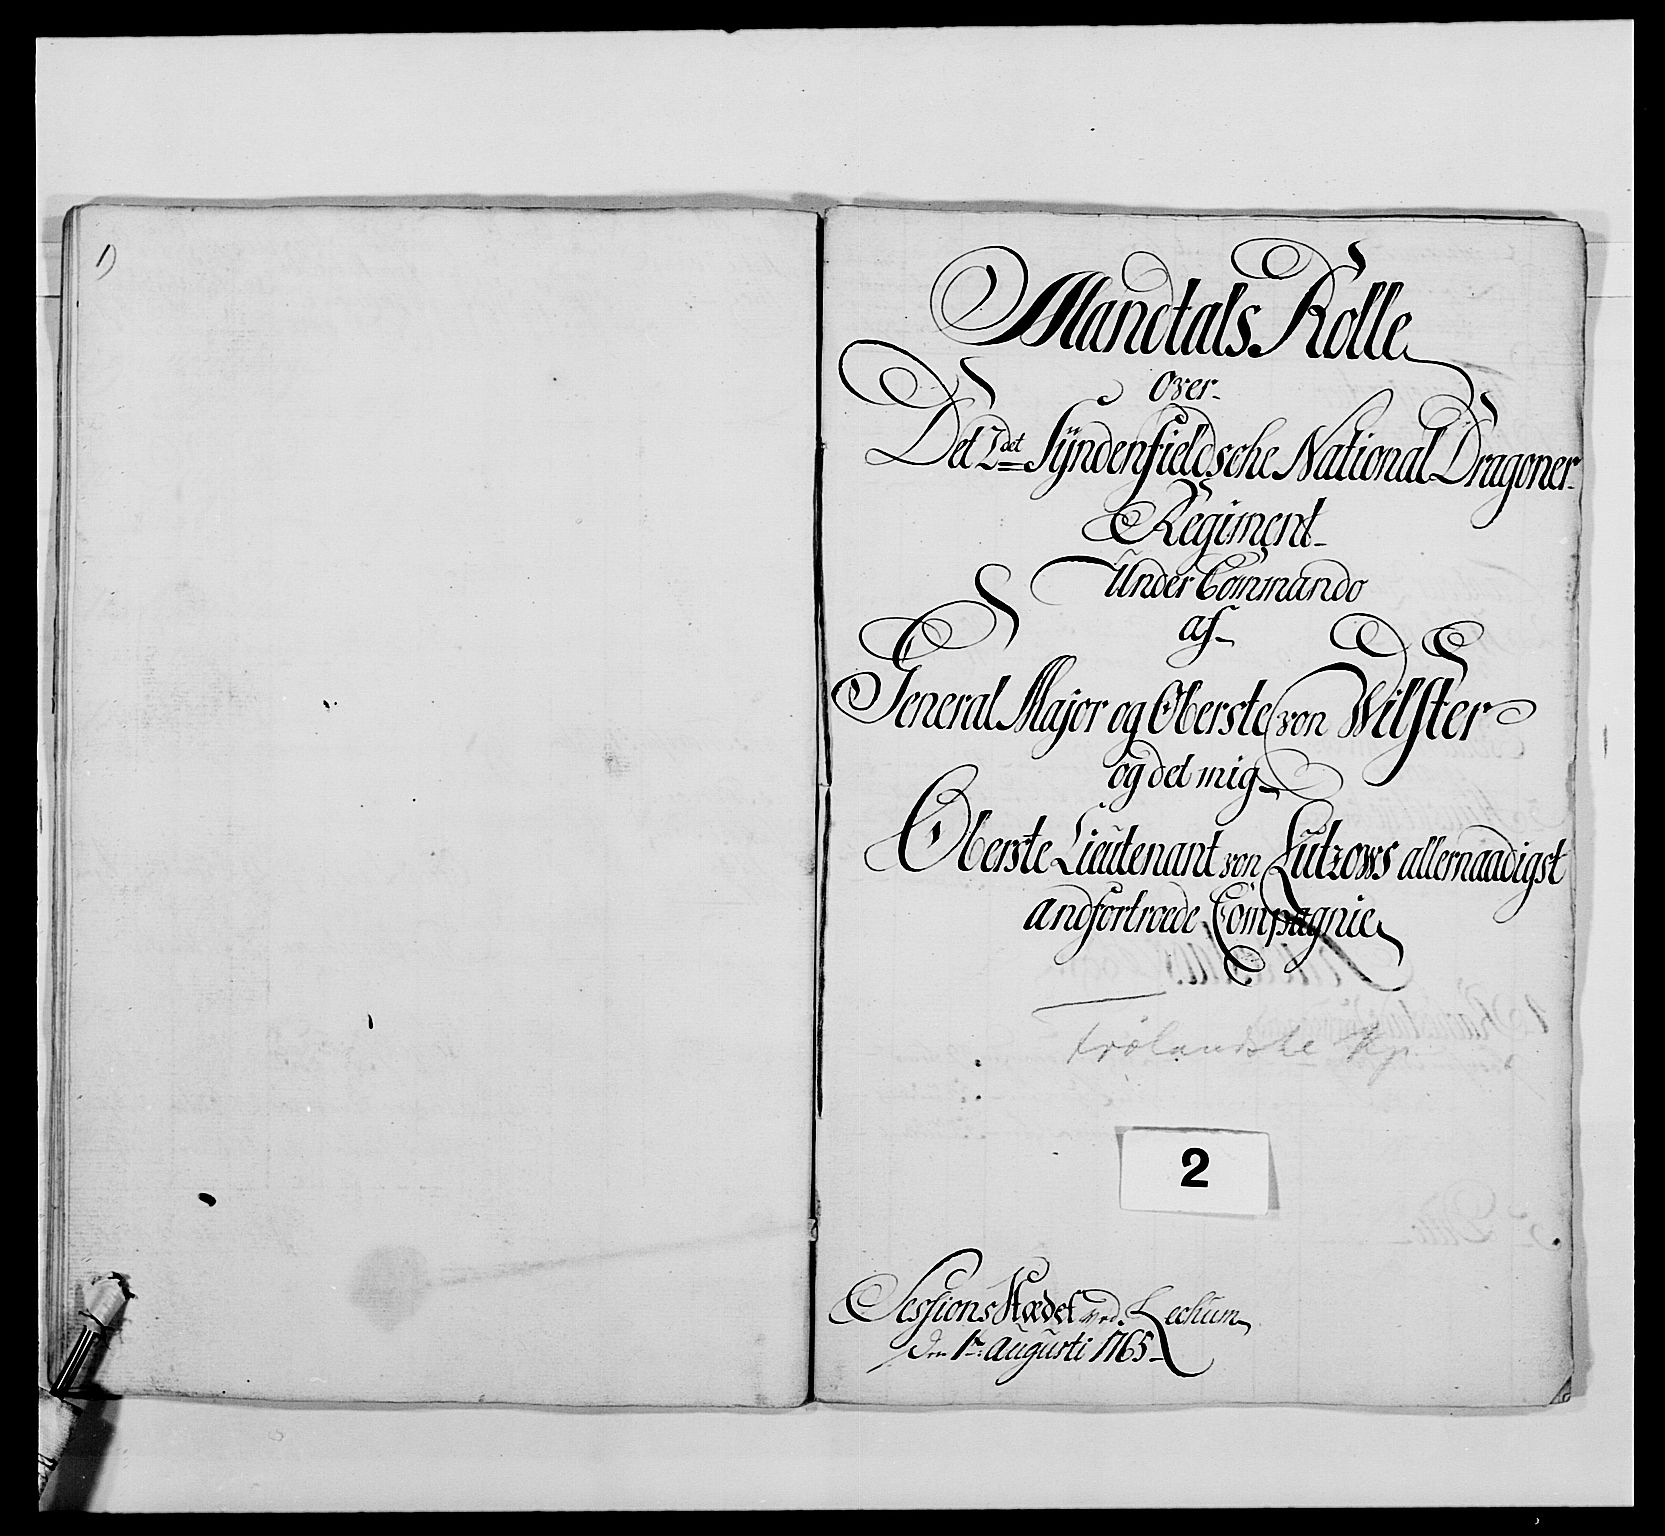 1)
Mandtals Rolle
Over
Det 2det Syndenfieldsche National Dragoner
Regiment
Under Commando
af
General Major og Oberste von Wilster
og det mig
Oberste Lieutenant von Lützows allernaadigst
andfortroede Compagnie
Frölandske Kp.
2
Sessions Stædet ved Lechum
Den 1te Augusti 1765